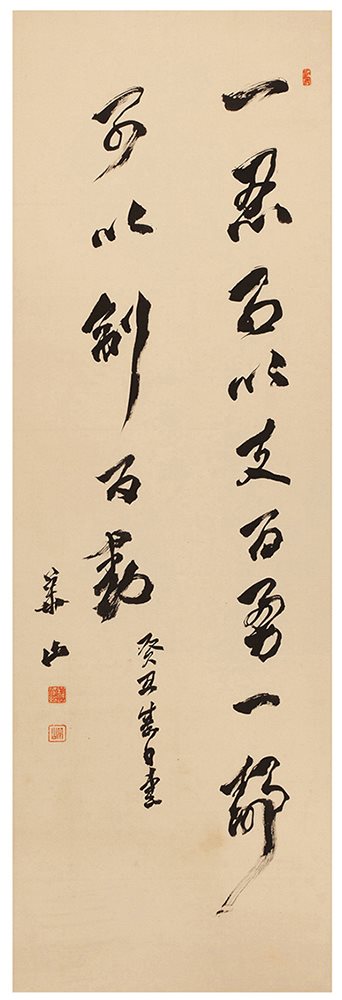 一忍可以支百勇一靜
可以制百動
癸丑春日書
華山